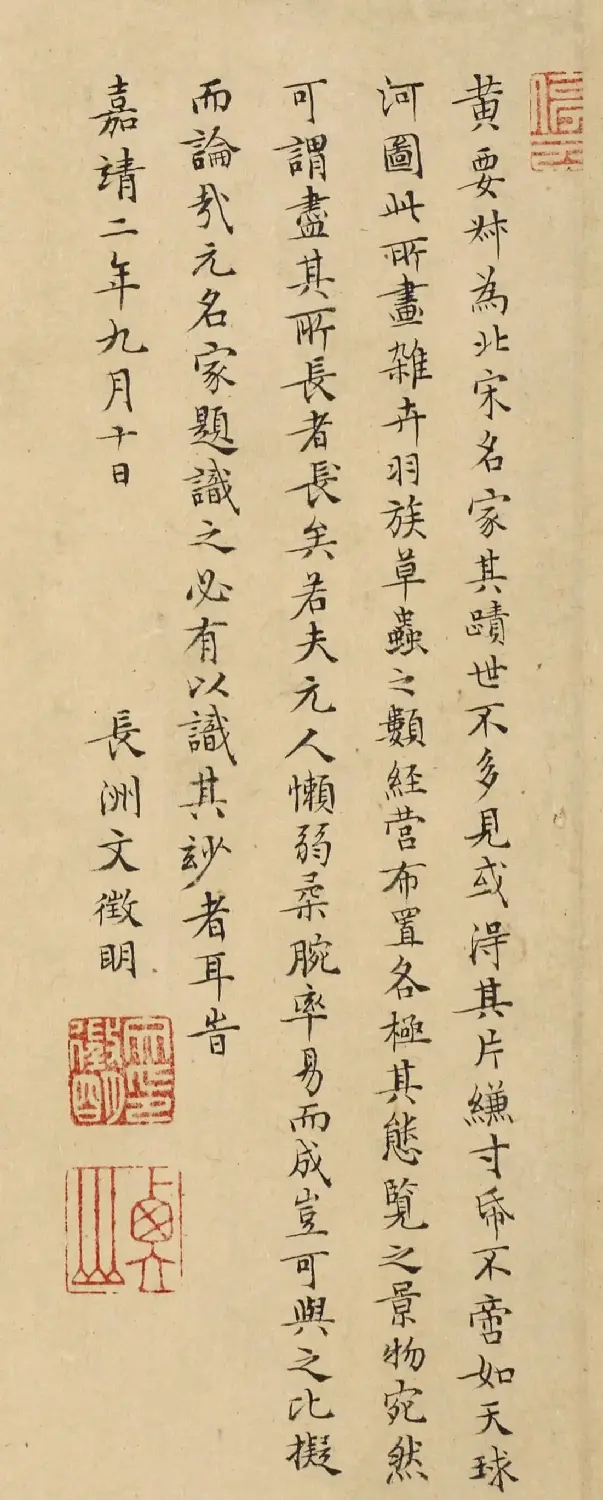 黄要叔為北宋名家其蹟世不多見或淂其片縑寸帋不啻如天球
河圖此所畫雜卉羽族草蟲之類経营布置各極其態覧之景物宛然
可謂盡其所長者長矣若夫元人懶弱柔腕率易而成豈可與之比擬
而論㢤元名家題識之必有以識其玅者耳旹
嘉靖二年九月十日
長洲文徵明